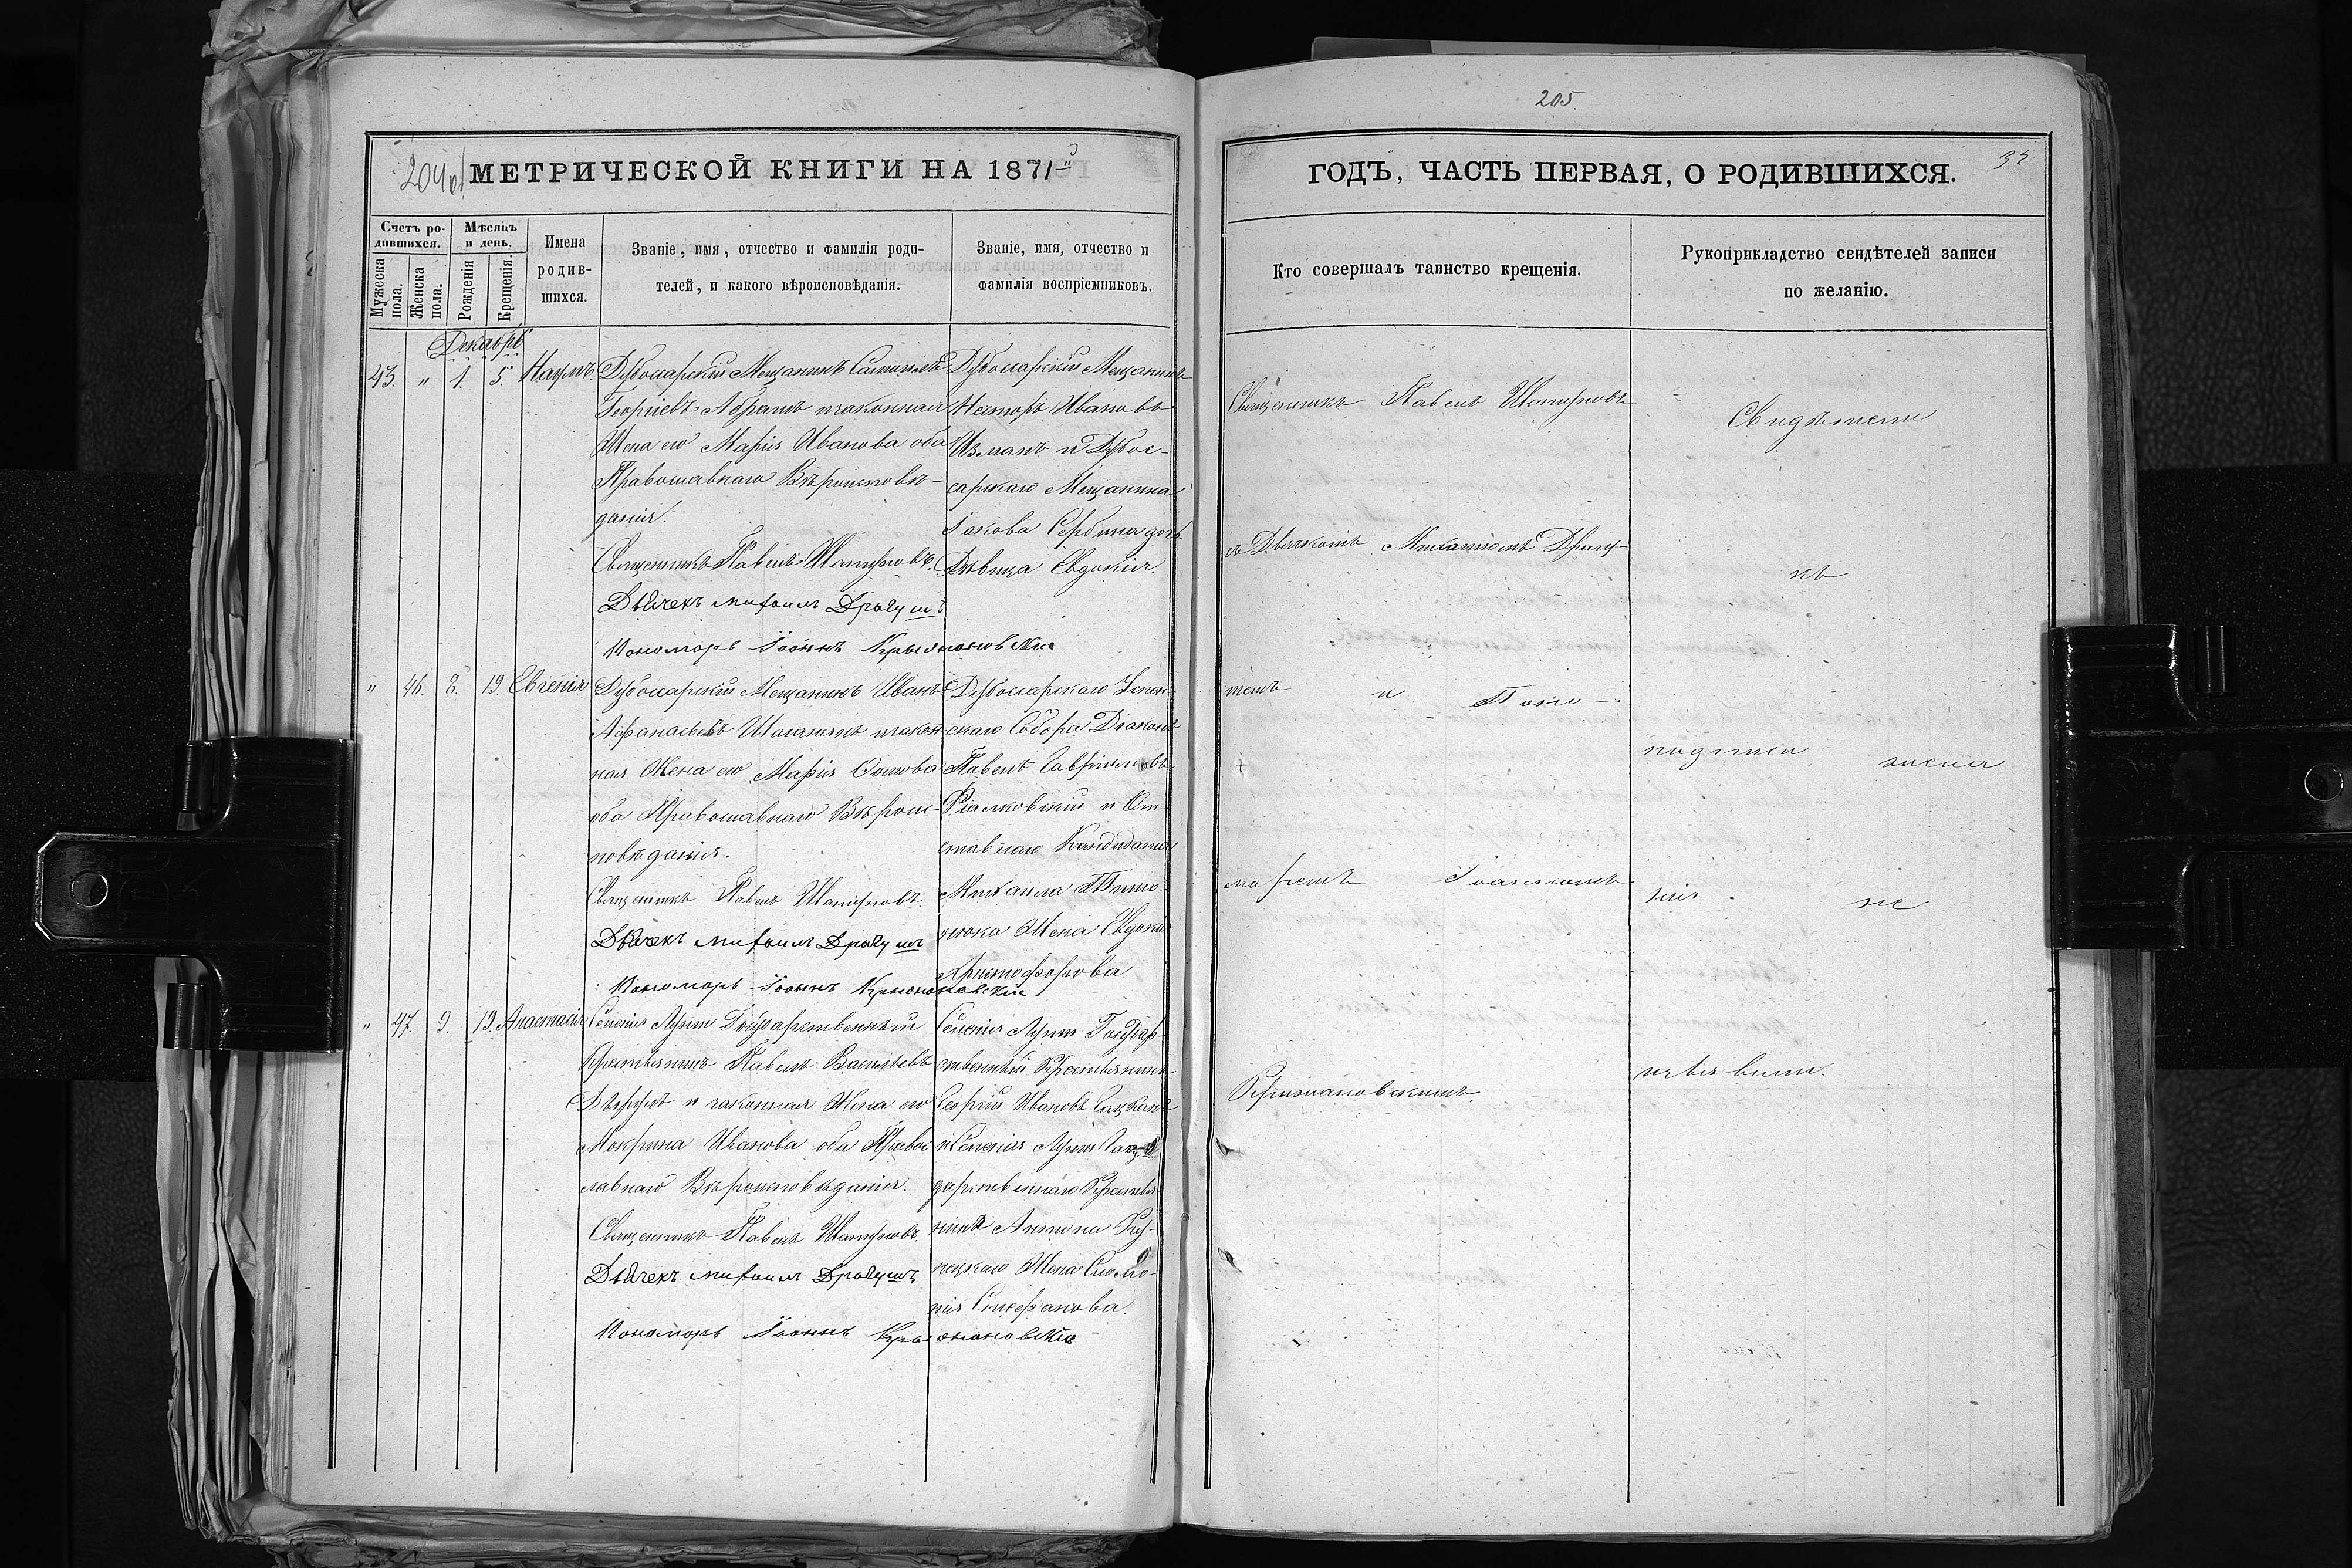 204 об
МЕТРИЧЕСКОЙ КНИГИ НА 1871й
Счетъ ро-
дившихся.
Мужеска
пола.
Женска
пола.
Мѣсяцъ
и день.
Рожденія
Крещенія.
Имена
родив-
шихся.
Званіе, имя, отчество и фамилія роди-
телей, и какого вѣроисповѣданія.
Званіе, имя, отчество и
фамилія воспріемниковъ.
Декабрь
43. " 1. 5. Наумъ.
Дубоссарскій Мещанинъ Самуилъ
Георгіевъ Абрамъ и законная
Жена его Марія Иванова оба
Православнаго Вѣроисповѣ-
данія.
Священникъ Павелъ Шатуновъ.
Дьячекъ Михаилъ Драгушъ
Пономарь Іоаннъ Крыжановскій
Дубоссарскій Мещанинъ
Несторъ Ивановъ
Изманъ и Дубос-
сарскаго Мещанина
Іакова Сербина дочь
Дѣвица Евдокія.
" 46. 8. 19. Евгенія
Дубоссарскій Мещанинъ Иванъ
Афанасьевъ Шаганинъ и закон-
ная Жена его Марія Осипова
оба Православнаго Вѣроис-
повѣданія.
Священникъ Павелъ Шатуновъ.
Дьячекъ Михаилъ Драгушъ
Пономарь Іоаннъ Крыжановскій
Дубоссарскаго Успен-
скаго Собора Діаконъ
Павелъ Гавриловъ
Фіалковскій и От-
ставнаго Кандидата
Михаила Тимо-
нюка Жена Евдокія
Христофорова
" 47. 9. 19. Анастасія
Селенія Лунги Государственный
Крестьянинъ Павелъ Васильевъ
и законная Жена его
Мокрина Иванова оба Правос-
лавнаго Вѣроисповѣданія.
Священникъ Павелъ Шатуновъ.
Дьячекъ Михаилъ Драгушъ
Пономарь Іоаннъ Крыжановскій
Селенія Лунги Государ-
ственный Крестьянинъ
Георгій Ивановъ Гацканъ
и Селенія Лунги
дарственнаго Крестья-
нина Антона
Жена
нія Стефанова.
205.
ГОДЪ, ЧАСТЬ ПЕРВАЯ, О РОДИВШИХСЯ.
Кто совершалъ таинство крещенія.
Рукоприкладство свидѣтелей записи
по желанію.
Священникъ Павелъ Шатуновъ
съ Дьячкомъ Михаиломъ Драгу-
шемъ и Поно-
маремъ Іоанномъ
Крыжановскимъ.
Свидѣтели
къ
подписи
желанія не
изъявили.